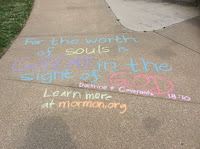 For the worth
of souls is
great in the
sight of GOD
Doctrine & Covenants
18:10
Learn more
at mormon.org